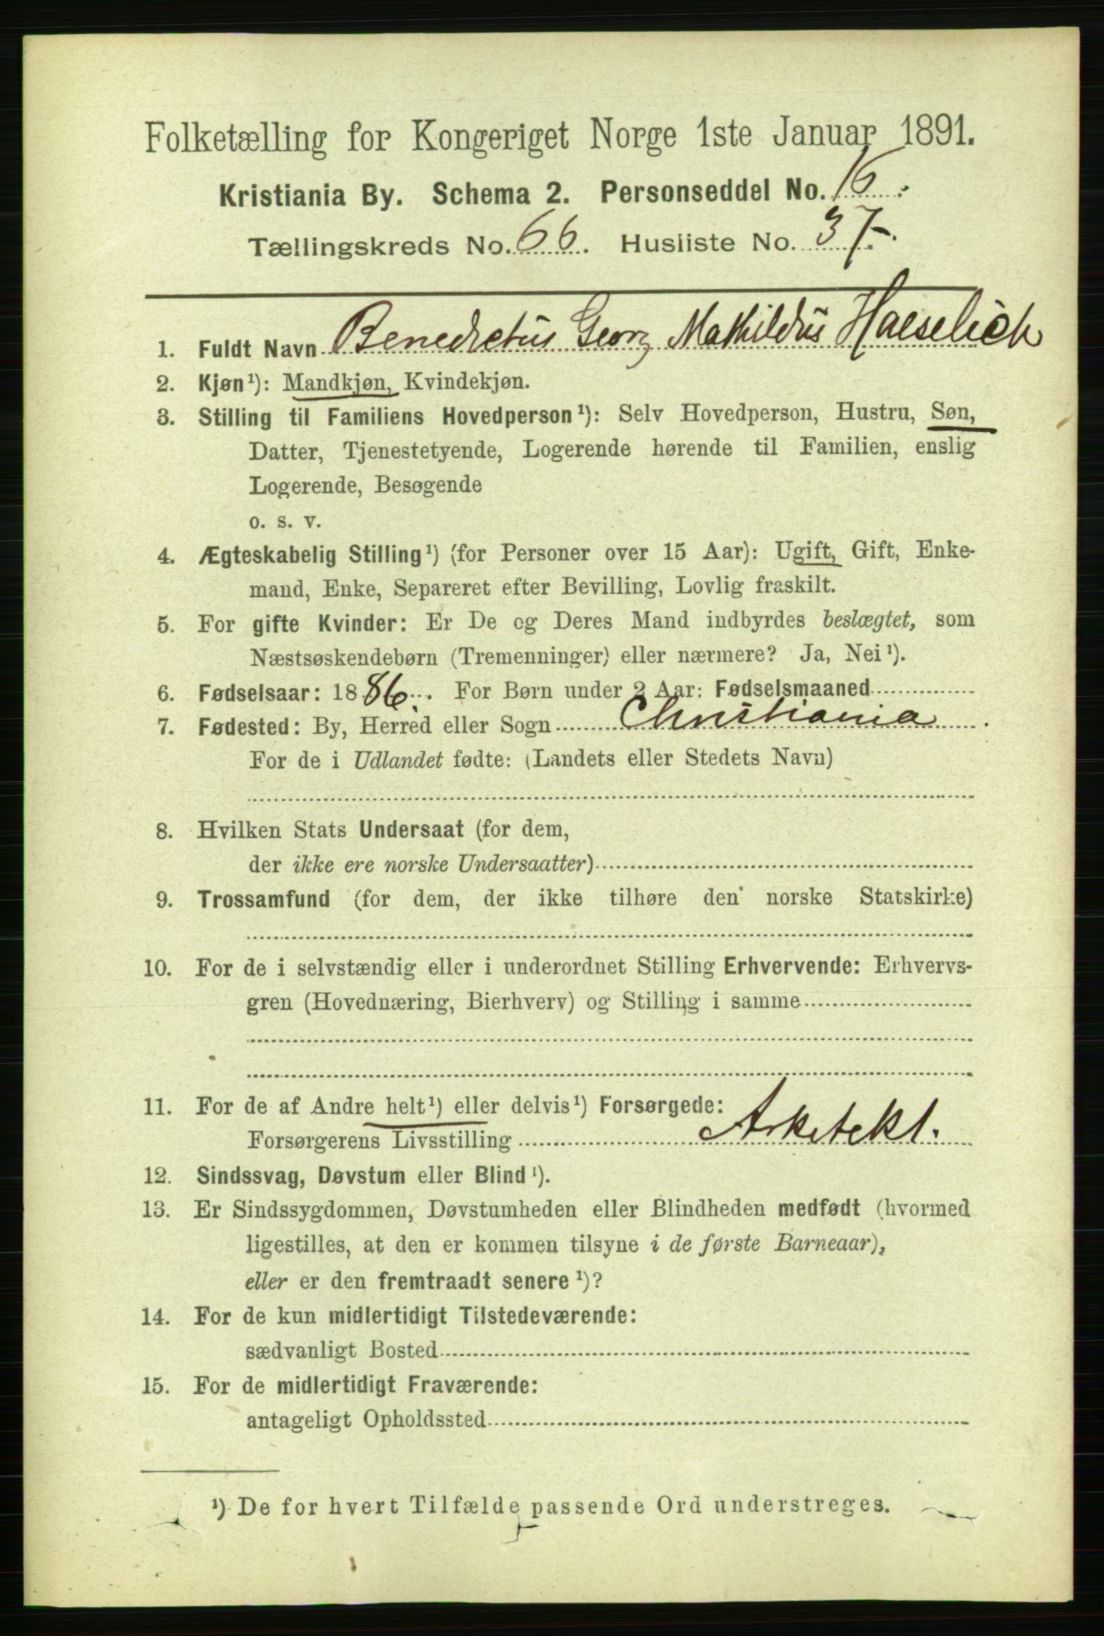 Folketælling for Kongeriget Norge 1ste Januar 1891.
Kristiania By. Schema 2. Personseddel No. 16.
Tællingskreds No. 66. Husliste No. 37.
1. Fuldt Navn Benedictus Georg Mathildus Haeselich
2. Kjøn¹): Mandkjøn, Kvindekjøn.
3. Stilling til Familiens Hovedperson¹): Selv Hovedperson, Hustru, Søn,
Datter, Tjenestetyende, Logerende hørende til Familien, enslig
Logerende, Besøgende
o. s. v.
4. Ægteskabelig Stilling¹) (for Personer over 15 Aar): Ugift, Gift, Enke-
mand, Enke, Separeret efter Bevilling, Lovlig fraskilt.
5. For gifte Kvinder: Er De og Deres Mand indbyrdes beslægtet, som
Næstsøskendebørn (Tremenninger) eller nærmere? Ja, Nei¹).
6. Fødselsaar: 1886. For Børn under 2 Aar: Fødselsmaaned
7. Fødested: By, Herred eller Sogn Christiania.
For de i Udlandet fødte: (Landets eller Stedets Navn)
8. Hvilken Stats Undersaat (for dem,
der ikke ere norske Undersaatter)
9. Trossamfund (for dem, der ikke tilhøre den norske Statskirke)
10. For de i selvstændig eller i underordnet Stilling Erhvervende: Erhvervs-
gren (Hovednæring, Bierhverv) og Stilling i samme
11. For de af Andre helt¹) eller delvis¹) Forsørgede:
Forsørgerens Livsstilling Arkitekt.
12. Sindssvag, Døvstum eller Blind¹).
13. Er Sindssygdommen, Døvstumheden eller Blindheden medfødt (hvormed
ligestilles, at den er kommen tilsyne i de første Barneaar),
eller er den fremtraadt senere¹)?
14. For de kun midlertidigt Tilstedeværende:
sædvanligt Bosted
15. For de midlertidigt Fraværende:
antageligt Opholdssted
¹) De for hvert Tilfælde passende Ord understreges.